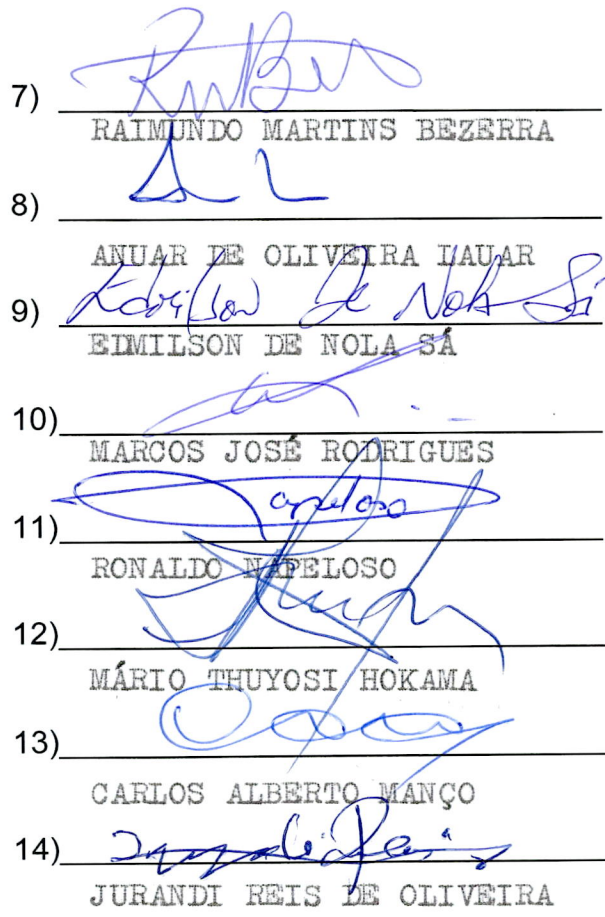 7)
RAIMUNDO MARTINS BEZERRA
8)
ANUAR DE OLIVEIRA LAUAR
9) Edmilson De Nola Sá
EDMILSON DE NOLA SÁ
10)
MARCOS JOSÉ RODRIGUES
11) Napeloso
RONALDO NAPELOSO
12)
MÁRIO THUYOSI HOKAMA
13)
CARLOS ALBERTO MANÇO
14)
JURANDI REIS DE OLIVEIRA